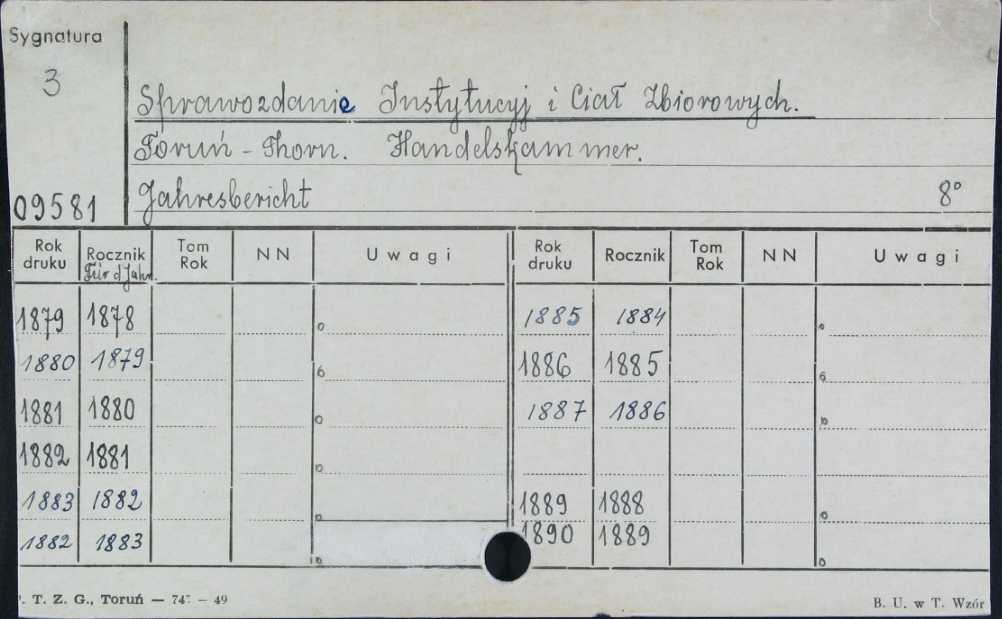 Sygnatura
3
Sprawozdanie Instytucyj i Ciał Zbiorowych.
Toruń - Thorn. Handelskammer.
09581 Jahresbericht 8°
Rok druku Rocznik Für d. Jahr. Tom Rok NN Uwagi Rok druku Rocznik Tom Rok NN Uwagi
1879 1878 1885 1884
1880 1879 1886 1885
1881 1880 1887 1886
1882 1881
1883 1882 1889 1888
1882 1883 1890 1889
T. Z. G., Toruń — 49 B. U. w T. Wzór